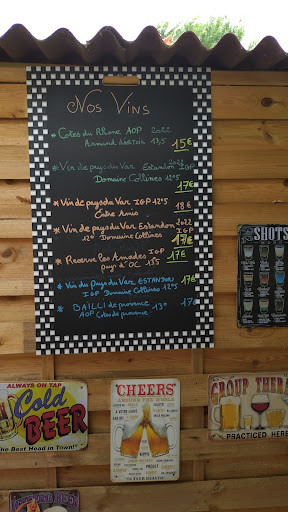 Nos Vins
* Cotes du Rhone AOP 2022
13,5 15€
* Vin de pays du Var Estandon IGP
Domaine Collines 12°5
17€
* Vin de pays du Var IGP 12°5
Entre Amis 18€
* Vin de pays du Var Estandon 2022
IGP
12° Domaine Collines 17€
* Reserve les Amades IGP
pays d'OC 13°5 17€
* Vin du Pays du Var ESTANDON 17€
IGP Domaine Collines 12°5
* BAILLI de provence 13° 17€
AOP Cotes de provence
SHOTS
ALWAYS ON TAP
Cold
BEER
The Best Head in Town!
CHEERS
AROUND THE WORLD
GROUP THERA
PRACTICED HERE